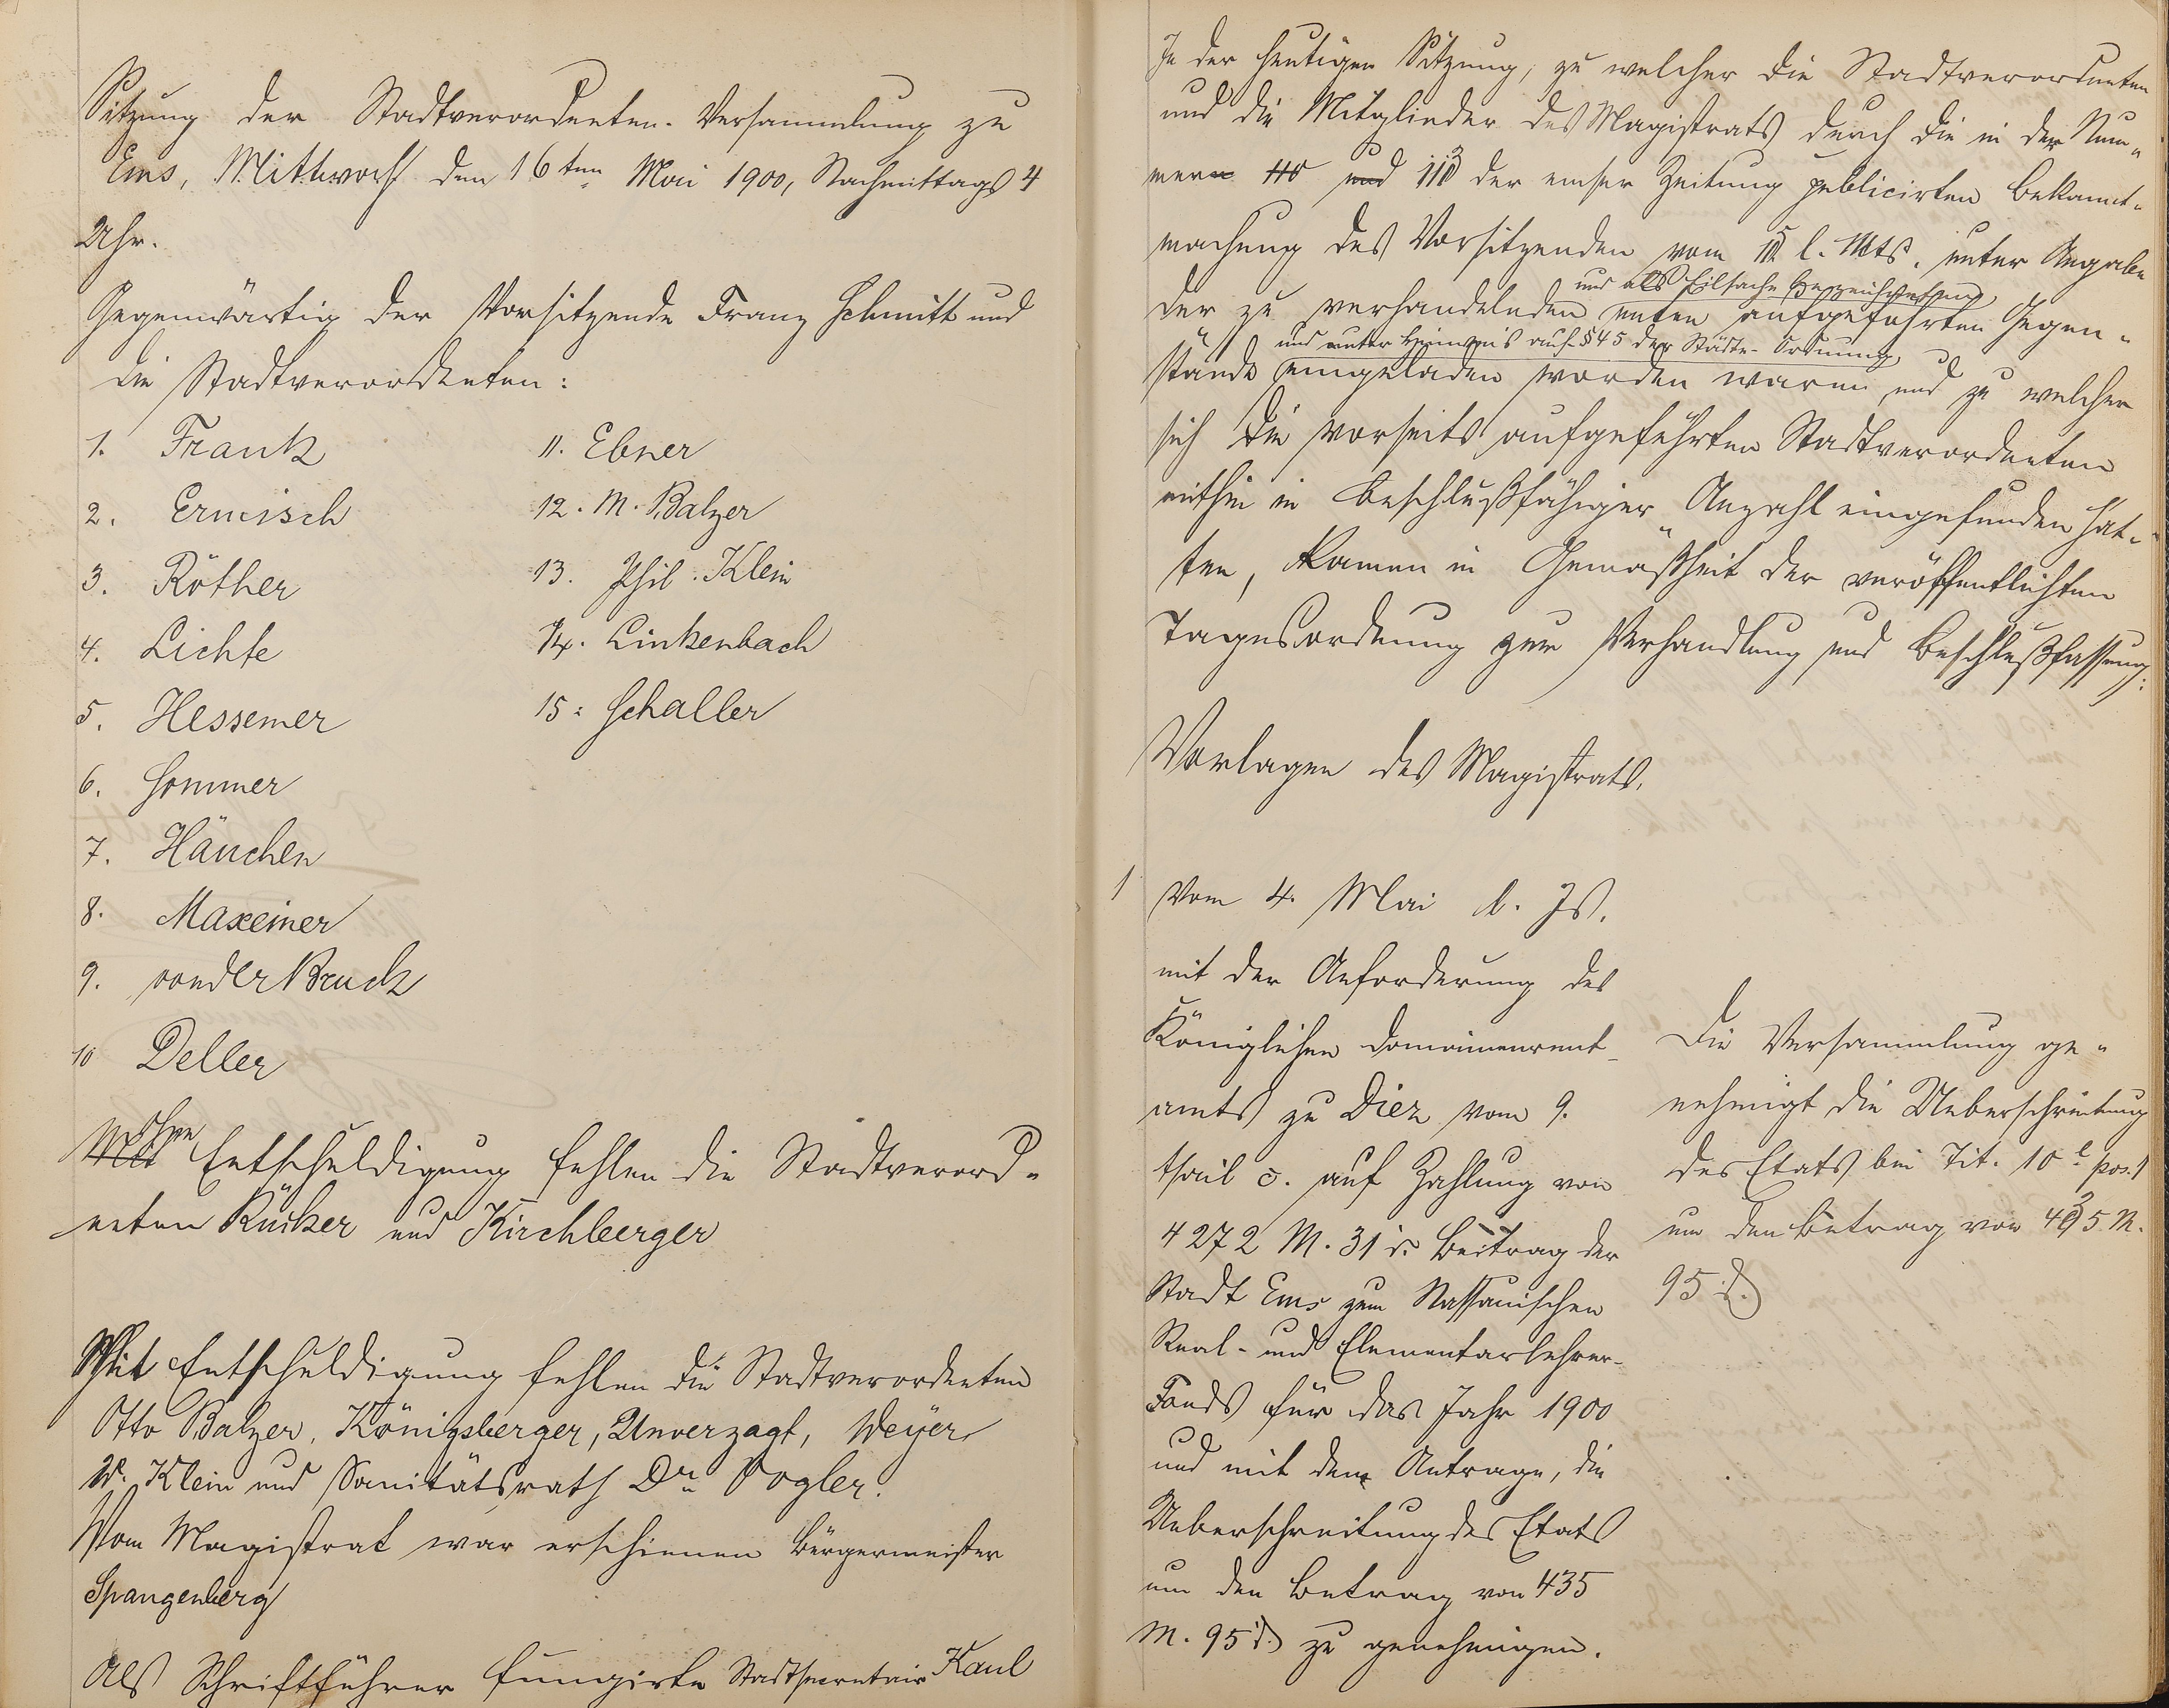 Sitzung der Stadtverordneten-Versammlung zu
Ems, Mittwoch den 16ten Mai 1900, Nachmittags 4
Uhr.
Gegenwärtig der Vorsitzende Franz Schmitt und
die Stadtverordneten:
1. Frank
2. Ermisch
3. Röther
4. Lichte
5. Hessemer
6. Sommer
7. Häuchen
8. Maxeiner
9. von der Bruck
10 Deller
11. Ebner
12. M. Balzer
13. Phil. Klein
14. Linkenbach
15. Schaller
ohne
Mit Entschuldigung fehlen die Stadtverord-
neten Rücker und Kirchberger
Mit Entschuldigung fehlen die Stadtverordneten
Otto Balzer, Königsberger, Unverzagt, Weyer
W. Klein und Sanitätsrath Dr. Vogler.
Vom Magistrat war erschienen Bürgermeister
Spangenberg
Als Schriftführer fungirte Stadtsecretair Kaul
In der heutigen Sitzung, zu welcher die Stadtverordneten
und die Mitglieder des Magistrats durch die in der Num-
mern 110 und 113 der Emser Zeitung publicirten Bekannt-
machung des Vorsitzenden vom 15 l. Mts. unter Angabe
und als Eilsache Bezeichnung
der zu verhandelnden unten aufgeführten Gegen-
und unter Hinweis auf § 45 der Städte-Ordnung
stände eingeladen worden waren und zu welcher
sich die vorseits aufgeführten Stadtverordneten
mithin in beschlußfähiger Anzahl eingefunden hat-
ten, kamen in Gemäßheit der veröffentlichten
Tagesordnung zur Verhandlung und Beschlußfassung:
Vorlagen des Magistrats.
1 Vom 4. Mai l. Js.
mit der Anforderung des
Königlichen Domainenrent-
amts zu Diez vom 9.
auf Zahlung von
4272 M. 31 d. Beitrag der
Stadt Ems zum Nassauischen
Real- und Elementarlehrer-
Fonds für das Jahr 1900
und mit dem Antrage, die
Ueberschreitung des Etats
um den Betrag von 435
M. 95 d. zu genehmigen.
Die Versammlung ge-
nehmigt die Ueberschreitung
des Etats bei Tit. 10 l pos. 1
um den Betrag von 435 M.
95 d.